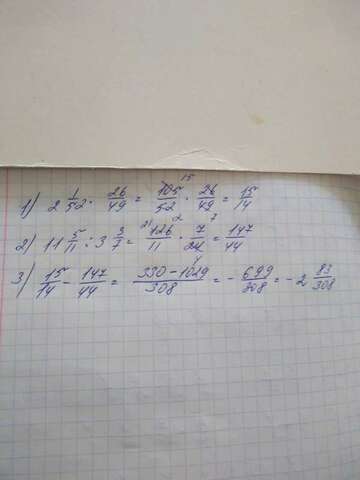 1) 2 1/52 · 26/49 = 105/52 · 26/49 = 15/14
2) 11 5/11 : 3 3/7 = 126/11 · 7/24 = 147/44
3) 15/14 - 147/44 = 330-1029/308 = - 699/308 = - 2 83/308